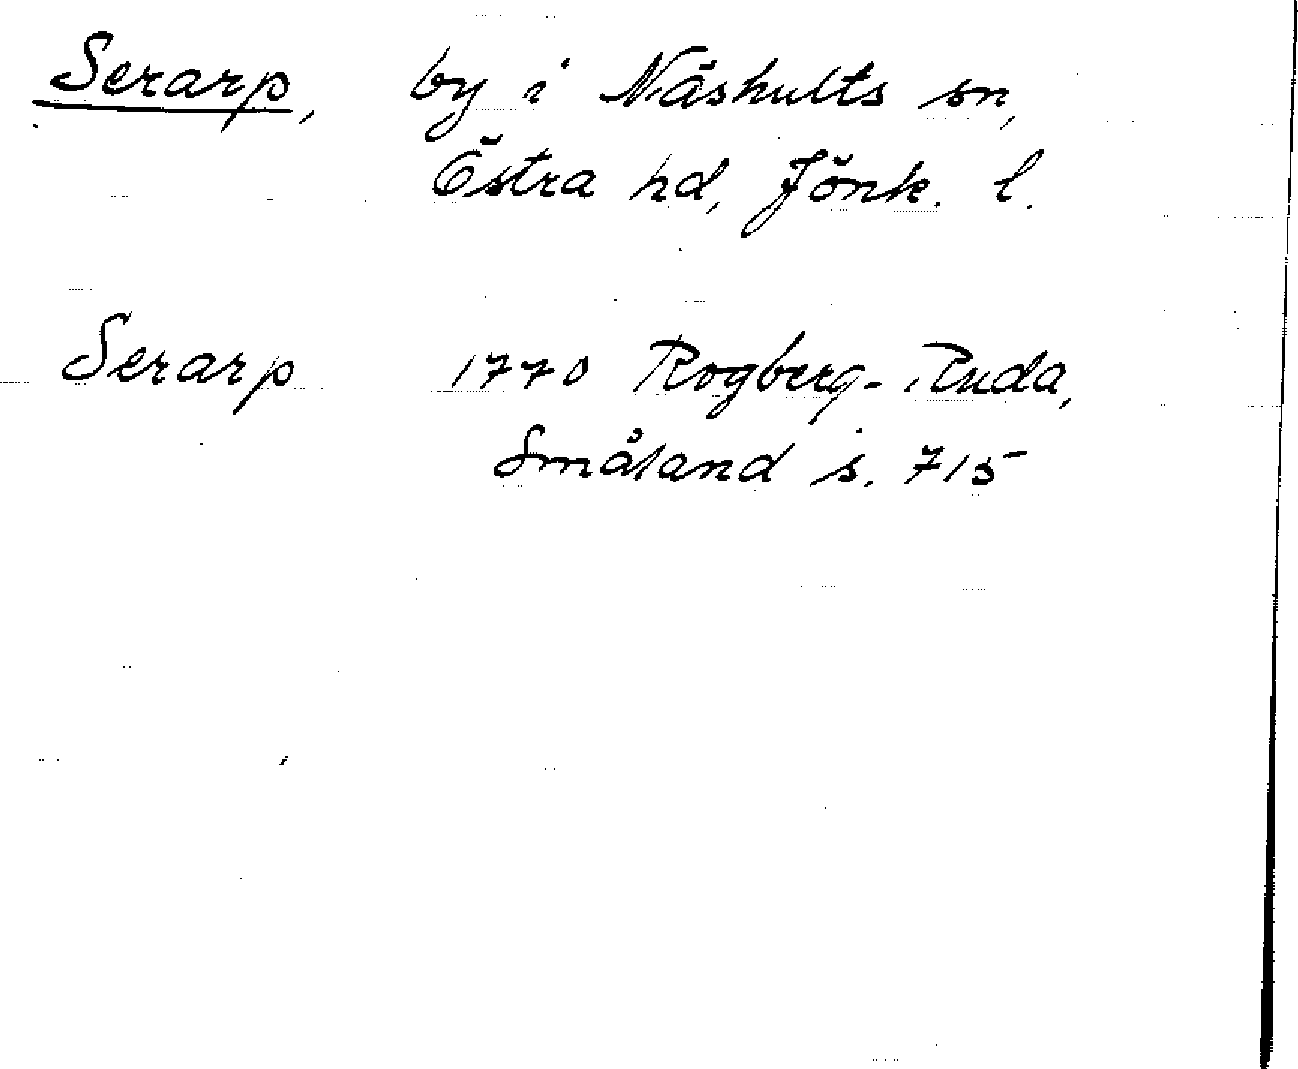 Serarp, by i Näshults sn,
Östra hd, Jönk. l.
Serarp 1770 Rogberg-Ruda,
Småland s. 715